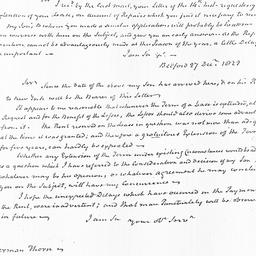 I rec'd by the last mail, your letter of the
explanation of your Lease, on account of Repairs which you find it necessary to
my Son; to whom you made a similar application will probably be
to converse with him on the Subject, and give you an early answer. As the Repairs
cannot be advantageously made at this Season of the year, a little Delay
important.
I am Sir
Bedford 27 Dec.r 1821
Sir, Since the date of the above my Son has arrived here, & on his
to New York will be the Bearer of this Letter
It appears to me reasonable that whenever the Term of a Lease is extended, at
Request and for the Benefit of the Lessee, the lessor should also derive some advantage
from it. The Rent reserved on the Lease in question was not more than
at the time it was granted; and therefore a gratuitous Extension of the Term
for five years, can hardly be expected
Whether any Extension of the Term under existing Circumstances would be
is a question which I have referred to the Consideration and Decision of my Son
whatever may be his opinion, or whatever agreement he may conclude
you on the Subject, will have my Concurrence
I hope the unexpected Delays which have occurred in the Payment
the Rent, were inadvertent; and that more Punctuality will be observed
in future
I am Sir your
Herman Thorn